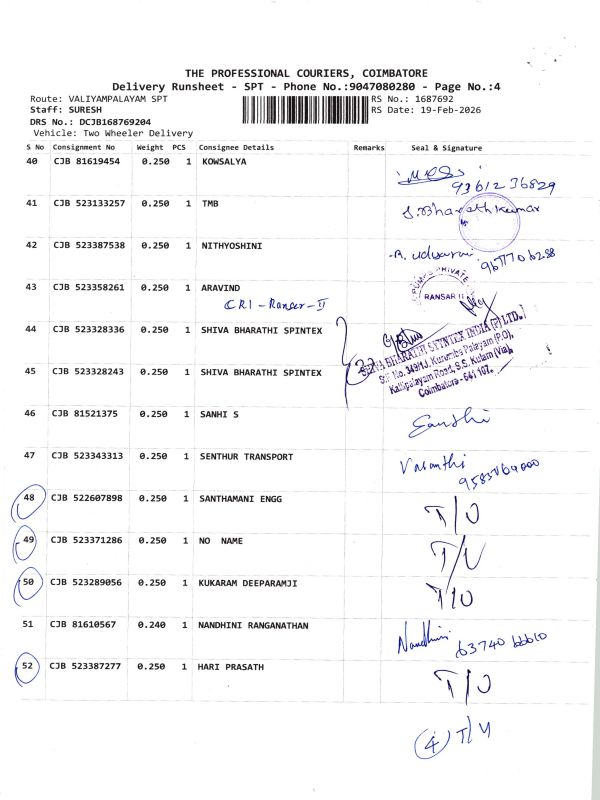 THE PROFESSIONAL COURIERS, COIMBATORE
Delivery Runsheet - SPT - Phone No.:9047080280 - Page No.:4
Route: VALIYAMPALAYAM SPT
Staff: SURESH
DRS No.: DCJB168769204
Vehicle: Two Wheeler Delivery
RS No.: 1687692
RS Date: 19-Feb-2026
S No Consignment No Weight PCS Consignee Details Remarks Seal & Signature
40 CJB 81619454 0.250 1 KOWSALYA
93612 36829
41 CJB 523133257 0.250 1 TMB
S.Bharathkumar
42 CJB 523387538 0.250 1 NITHYOSHINI
43 CJB 523358261 0.250 1 ARAVIND
CRI - Ranser - II
PRIVATE
RANSAR II
44 CJB 523328336 0.250 1 SHIVA BHARATHI SPINTEX
45 CJB 523328243 0.250 1 SHIVA BHARATHI SPINTEX
SHIVA BHARATHI SPINTEX INDIA (P) LTD.,
S.F No. 349/1J, Kurumba Palayam (P.O),
Kallipalayam Road, S.S. Kulam (Via),
Coimbatore - 641 107.
46 CJB 81521375 0.250 1 SANHI S
47 CJB 523343313 0.250 1 SENTHUR TRANSPORT
Vasanthi
48 CJB 522607898 0.250 1 SANTHAMANI ENGG
T/U
49 CJB 523371286 0.250 1 NO NAME
T/U
50 CJB 523289056 0.250 1 KUKARAM DEEPARAMJI
T/U
51 CJB 81610567 0.240 1 NANDHINI RANGANATHAN
Nandhini 63740 66610
52 CJB 523387277 0.250 1 HARI PRASATH
T/U
4 T/U